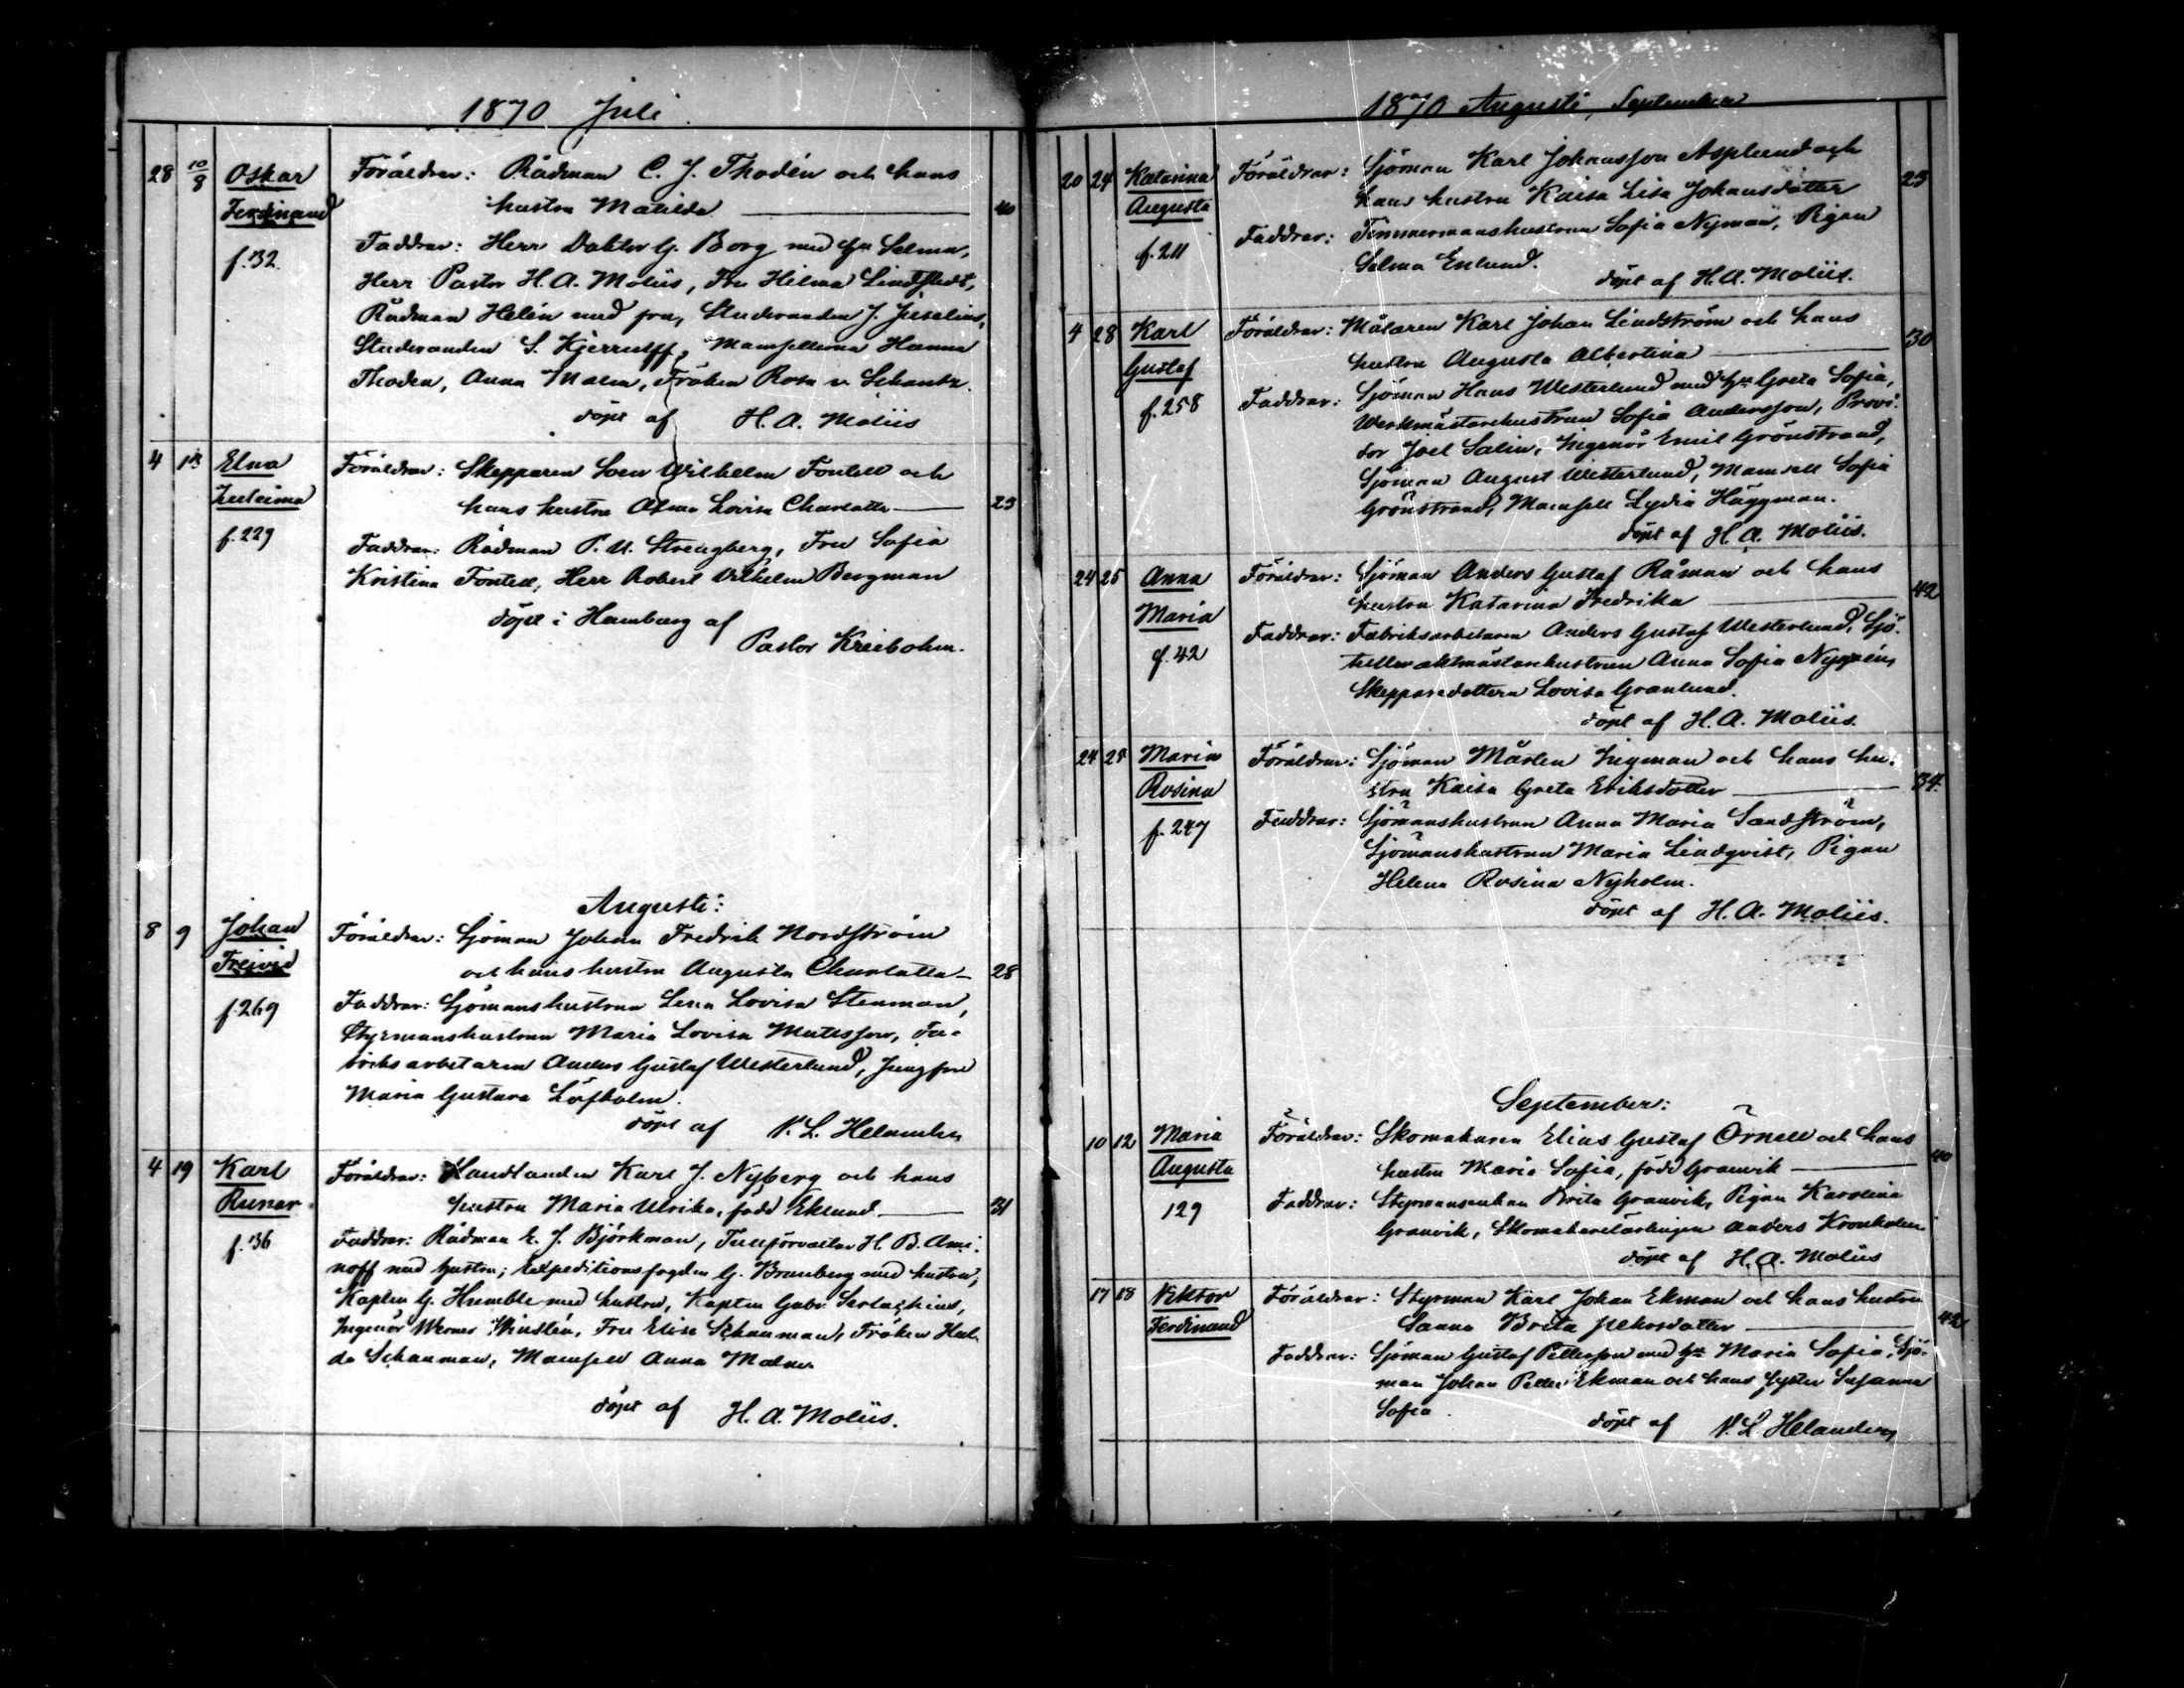 1870 Juli.
28 10/8 Oskar Föräldrar: Rådman C. J. Thodén och hans
Ferdinand hustru Matilda 40
f. 32. Faddrar: Herr Doktor G. Borg med hu Selma,
Herr Pastor H. A. Moliis, Fru Hilma Lindstedt,
Rådman Helén med fru, Studeranden J.
Studeranden S. Kjerrulff, Mamsellerna Hanna
Thoden, Anna Malm, Fröken Rosa v. Schantz.
döpt af H. A. Moliis
4 Elna Föräldrar: Skepparen Wilhelm Fontell och
hans hustru Alma Lovisa Charlotta 23
f. 229 Faddrar: Rådman P. U. Strengberg, Fru Sofia
Kristina Fontell, Herr Robert Vilhelm Bergman
döpt i Hamburg af
Pastor Kreibohm.
Augusti:
8 9 Johan Föräldrar: Sjöman Johan Fredrik Nordström
Freivid och hans hustru Augusta Charlotta 28
f. 269 Faddrar: Sjömanshustrun Lena Lovisa Stenman,
Styrmanshustrun Maria Lovisa Mattsson, Fa-
briksarbetaren Anders Gustaf Westerlund, Jungfru
Maria Gustava Löfholm.
döpt af V. L. Helander
4 19 Karl Föräldrar: Handlanden Karl J. Nyberg och hans
Runar hustru Maria Ulrika, född Eklund 31
f. 36 Faddrar: Rådman E. J. Björkman, Tullförvaltar H. B. Ami-
noff med hustru; Expeditionsfogden G. Brunberg med hustru,
Kapten G. Humble med hustru, Kapten Gabr.
Ingenör Werner Winstén, Fru Elise Schauman, Fröken Hul-
da Schauman, Mamsell Anna Malm
döpt af H. A. Moliis.
1870 Augusti, September
20 24 Katarina Föräldrar: Sjöman Karl Johansson Asplund och
Augusta hans hustru Kaisa Lisa Johansdotter 23
f. 211 Faddrar: Timmermanshustrun Sofia Nyman, Pigan
Selma Enlund.
döpt af H. A. Moliis.
4 28 Karl Föräldrar: Målaren Karl Johan Lindström och hans
Gustaf hustru Augusta Albertina 30
f. 258 Faddrar: Sjöman Hans Westerlund med hu Greta Sofia,
Werkmästarehustrun Sofia Andersson, Provi-
sor Joel Salin, Ingenör Emil Grönstrand,
Sjöman August Westerlund, Mamsell Sofia
Grönstrand, Mamsell Lydia Häggman.
döpt af H. A. Moliis.
24 25 Anna Föräldrar: Sjöman Anders Gustaf Råman och hans
Maria hustru Katarina Fredrika 42
f. 42 Faddrar: Fabriksarbetaren Anders Gustaf Westerlund, Sjö-
tullvaktmästarehustrun Anna Sofia
Skepparedottern Lovisa Granlund.
döpt af H. A. Moliis.
24 28 Maria Föräldrar: Sjöman Mårten Ingman och hans hu-
Rosina stru Kaisa Greta Eriksdotter 34.
f. 247 Faddrar: Sjömanshustrun Anna Maria Sandström,
Sjömanshustrun Maria Lindqvist, Pigan
Helena Rosina Nyholm.
döpt af H. A. Moliis.
September:
10 12 Maria Föräldrar: Skomakaren Elias Gustaf Örnell och hans
Augusta hustru Maria Sofia, född Granvik 40
129 Faddrar: Styrmansenkan Brita Granvik, Pigan Karolina
Granvik, Skomakarelärlingen Anders Kronholm
döpt af H. A. Moliis
17 18 Viktor Föräldrar: Styrman Karl Johan Ekman och hans hustru
Ferdinand Sanna Brita 42
Faddrar: Sjöman Gustaf Pettersson med hu Maria Sofia, Sjö-
man Johan Petter Ekman och hans syster Susanna
Sofia.
döpt af V. L. Helander